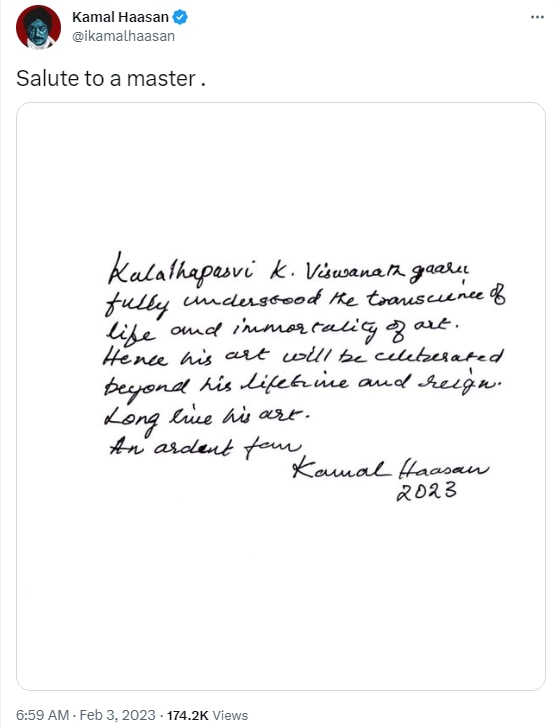 Kamal Haasan
@ikamalhaasan
Salute to a master .
Kalathapasvi K. Viswanath gaaru
fully understood the transcience of
life and immortality of art.
Hence his art will be celeberated
beyond his lifetime and reign.
Long live his art.
An ardent fan
Kamal Haasan
2023
6:59 AM · Feb 3, 2023 · 174.2K Views